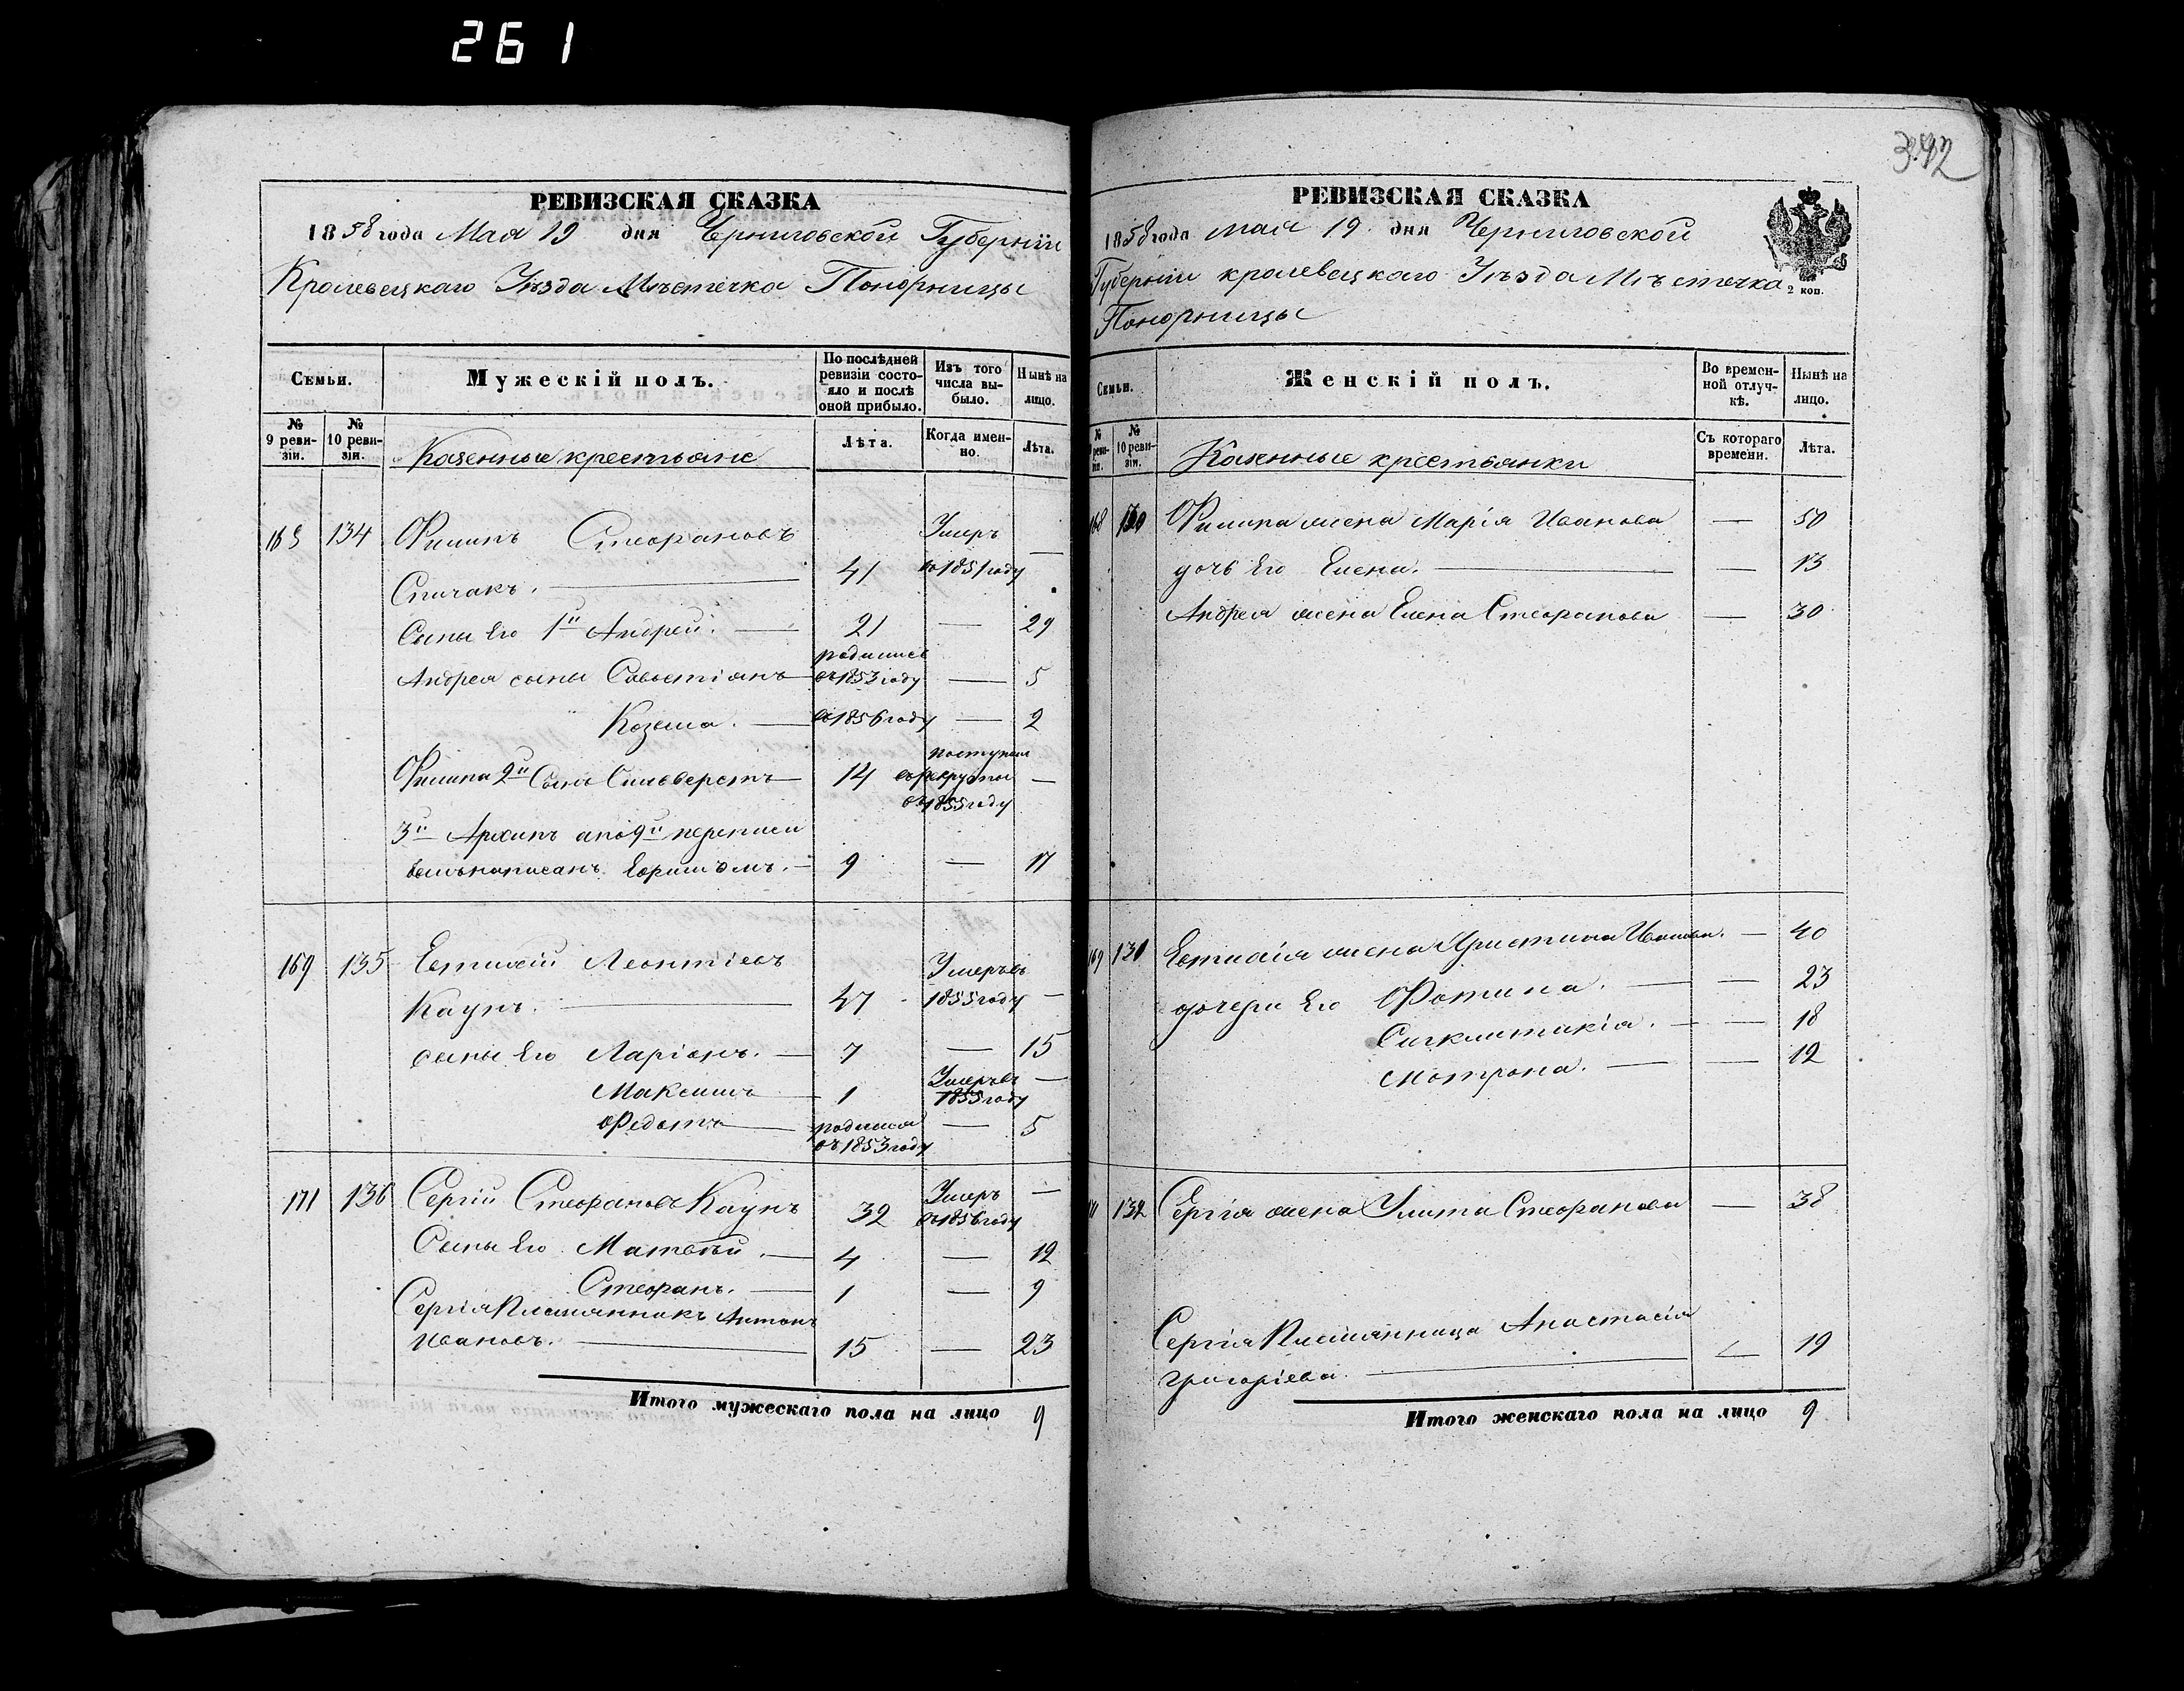 261
342
РЕВИЗСКАЯ СКАЗКА
1858 года Мая 19 дня Черниговской Губерніи
Кролевецкаго Уѣзда Мѣстечка Понорницы
Семьи.
Мужескій полъ.
По послѣдней ревизіи состояло и послѣ оной прибыло.
Изъ того числа выбыло.
Нынѣ на лицо.
№ 9 ревизіи.
№ 10 ревизіи.
Казенные крестьяне
Лѣта.
Когда именно.
Лѣта.
168 134 Филипъ Стефановъ Умеръ —
Спичакъ. — 41 въ 1851 году
Сыны Его 1й Андрей. — 21 — 29
родились
Андрея сыны Савостіянъ въ 1853 году — 5
Козьма. — въ 1856 году — 2
Филипа 2й Сынъ Сильверстъ — 14 поступил в рекруты въ 1855 году —
3й Архипъ а по 9й переписи
былъ написанъ Ефримомъ. — 9 — 17
169 135 Евтихій Леонтіевъ Умеръ въ
Каунъ. — 47 1855 году —
сыны Его Ларіонъ. — 7 — 15
Максимъ — 1 Умеръ въ 1855 году —
Федотъ — родился въ 1853 году — 5
171 136 Сергій Стефановъ Каунъ 32 Умеръ въ 1856 году —
Сыны Его Матвѣй. — 4 — 12
Стефанъ. — 1 — 9
Сергія Племянникъ Антонъ
Ивановъ. — 15 — 23
Итого мужескаго пола на лицо 9
РЕВИЗСКАЯ СКАЗКА
1858 года мая 19 дня Черниговской
Губерніи кролевецкаго Уѣзда Мѣстечка
2 коп.
Понорницы
Семьи.
Женскій полъ.
Во временной отлучкѣ.
Нынѣ на лицо.
№ 9 ревизіи.
№ 10 ревизіи.
Казенные крестьянки
Съ котораго времени.
Лѣта.
168 130 Филипа жена Марія Иванова — 50
дочь Его Елена. — — 13
Андрея жена Елена Стефанова — 30
169 131 Евтихія жена Христина Иванова. — 40
дочери Его Фотина. — — 23
Сигклитикія. — — 18
Мотрона. — — 12
171 132 Сергія жена Улита Стефанова — 38
Сергія Племянница Анастасія
Григоріева. — — 19
Итого женскаго пола на лицо 9